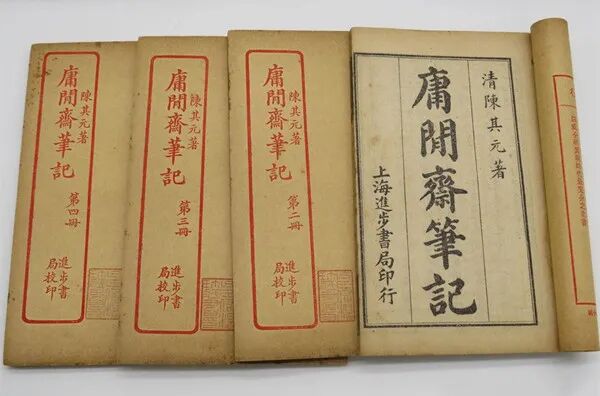 清陳其元著
庸閒齋筆記
上海進步書局印行
陳其元著
庸閒齋筆記
第二冊
進步書
局校印
陳其元著
庸閒齋筆記
第三冊
進步書
局校印
陳其元著
庸閒齋筆記
第四冊
進步書
局校印